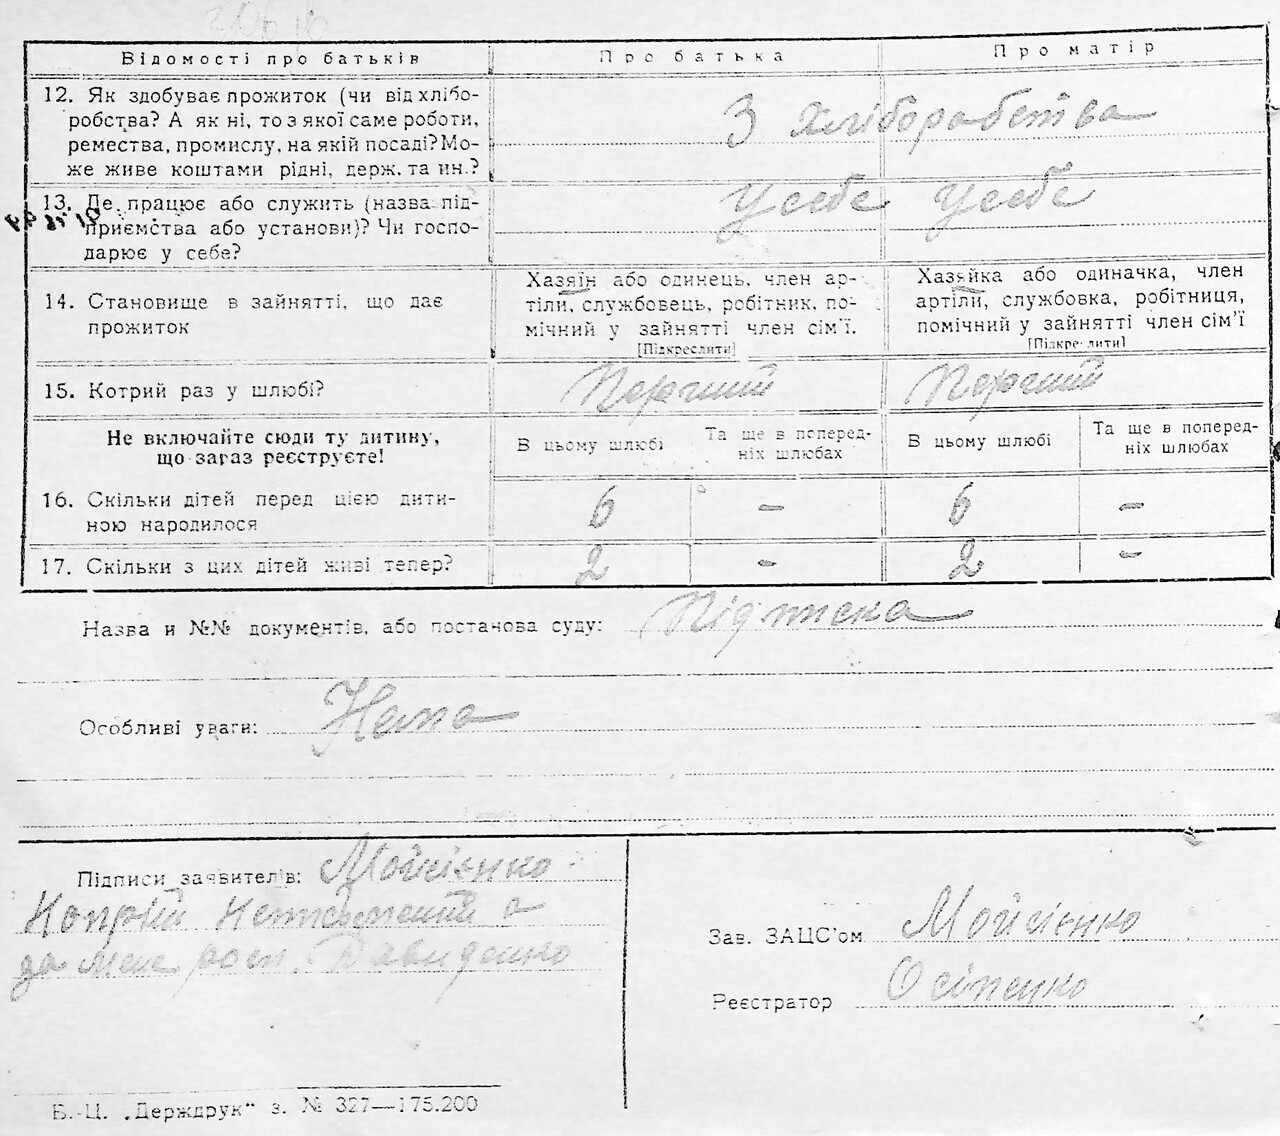 Відомості про батьків Про батька Про матір
12. Як здобуває прожиток (чи від хлібо-
робства? А як ні, то з якої саме роботи,
ремества, промислу, на якій посаді? Мо-
же живе коштами рідні, держ. та ин.?
З хліборабства
13. Де працює або служить (назва під-
приємства або установи)? Чи госпо-
дарює у себе?
Усебе Усебе
14. Становище в зайнятті, що дає
прожиток
Хазяїн або одинець, член ар-
тіли, службовець, робітник, по-
мічний у зайнятті член сім'ї.
[Підкреслити]
Хазяйка або одиначка, член
артіли, службовка, робітниця,
помічний у зайнятті член сім'ї
[Підкреслити]
15. Котрий раз у шлюбі? Перший Перший
Не включайте сюди ту дитину,
що зараз реєструєте!
В цьому шлюбі
Та ще в поперед-
ніх шлюбах
В цьому шлюбі
Та ще в поперед-
ніх шлюбах
16. Скільки дітей перед цією дити-
ною народилося
6 – 6 –
17. Скільки з цих дітей живі тепер? 2 – 2 –
Назва и №№ документів, або постанова суду: Підписка
Особливі уваги: Нема
Підписи заявителів: Мойсієнко
Копрій Неписьмений а
за мене росп. Давиденко
Зав. ЗАЦС'ом Мойсієнко
Реєстратор Осіпенко
Б.-Ц. „Держдрук" з. № 327—175.200